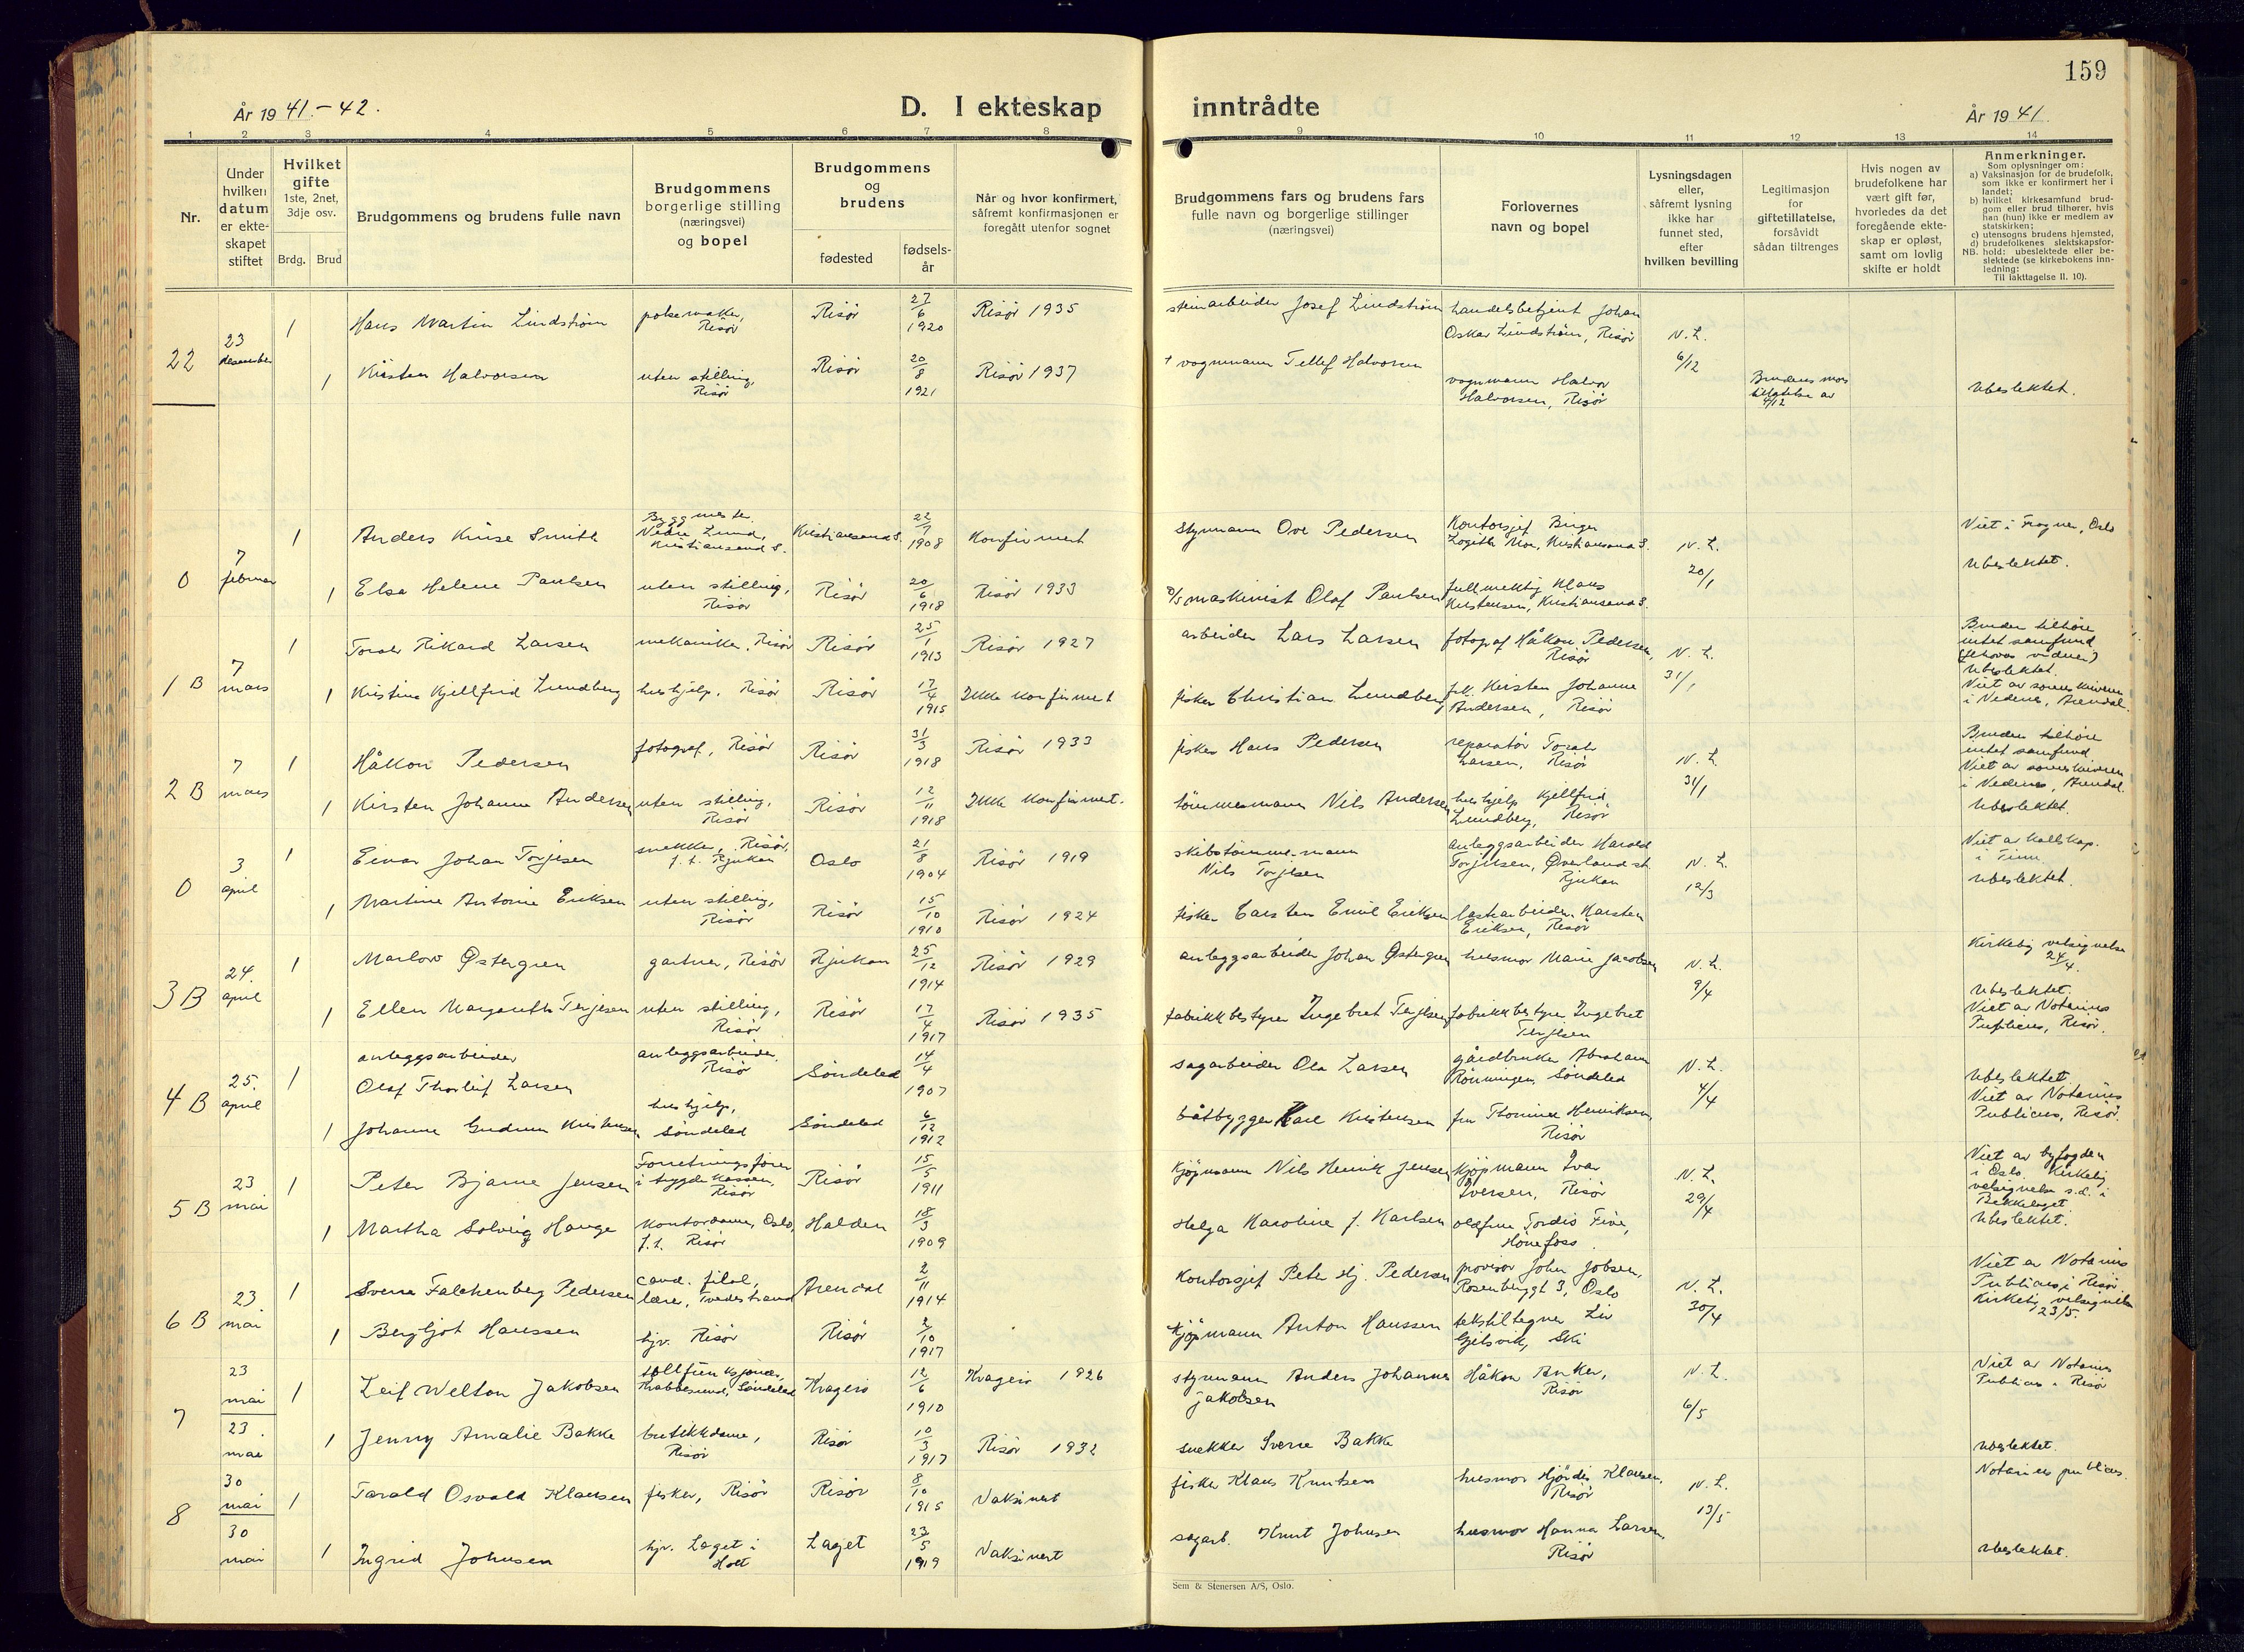 159
År 1941.-42.
D. I ekteskap inntrådte
År 1941.
1 2 3 4 5 6 7 8 9 10 11 12 13 14
Nr.
Under hvilken datum er ekteskapet stiftet
Hvilket gifte 1ste, 2net, 3dje osv.
Brdg. Brud
Brudgommens og brudens fulle navn
Brudgommens borgerlige stilling (næringsvei) og bopel
Brudgommens og brudens
fødested
fødselsår
Når og hvor konfirmert, såfremt konfirmasjonen er foregått utenfor sognet
Brudgommens fars og brudens fars fulle navn og borgerlige stillinger (næringsvei)
Forlovernes navn og bopel
Lysningsdagen eller, såfremt lysning ikke har funnet sted, efter hvilken bevilling
Legitimasjon for giftetillatelse, forsåvidt sådan tiltrenges
Hvis nogen av brudefolkene har vært gift før, hvorledes da det foregående ekteskap er opløst, samt om lovlig skifte er holdt
Anmerkninger.
Som oplysninger om:
a) Vaksinasjon for de brudefolk, som ikke er konfirmert her i landet;
b) hvilket kirkesamfund brudgom eller brud tilhører, hvis han (hun) ikke er medlem av statskirken;
c) utensogns brudens hjemsted,
d) brudefolkenes slektskapsforhold: ubeslektede eller beslektede (se kirkebokens innledning:
NB.
Til iakttagelse II. 10).
22 23 desember 1 Hans Martin Lindstrøm pølsemaker, Risør Risør 27/6 1920 Risør 1935 steinarbeider Josef Lindstrøm handelsbetjent Johan Oskar Lindstrøm, Risør N.L. 6/12
1 Kirsten Halvorsen uten stilling, Risør Risør 20/8 1921 Risør 1937 † vognmann Tellef Halvorsen vognmann Halvor Halvorsen, Risør Brudens mors tillatelse av 4/12 Ubeslektet.
0 7 februar 1 Anders Kruse Smith Byggmester Nedre Lund, Kristiansand S. Kristiansand S. 22/7 1908 Konfirmert Styrmann Ove Pedersen Kontorsjef Birger Moe, Kristiansand S. N.L. 20/1 Viet i Frogner, Oslo
1 Elsa Helene Paulsen uten stilling, Risør Risør 20/6 1918 Risør 1933 D/S maskinist Olaf Paulsen fullmektig Klaus Kristensen, Kristiansand S. Ubeslektet.
1 B 7 mars 1 Toralv Rikard Larsen mekaniker, Risør Risør 25/1 1913 Risør 1927 arbeider Lars Larsen fotograf Håkon Pedersen, Risør N.L. 31/1 Bruden tilhører intet samfund (Jehovas vidner) Ubeslektet.
1 Kristine Kjellfrid Lundberg hushjelp, Risør Risør 17/4 1915 Ikke konfirmert fisker Christian Lundberg frk. Kirsten Johanne Andersen, Risør Viet av sorenskriveren i Nedenes, Arendal.
2 B 7 mars 1 Håkon Pedersen fotograf, Risør Risør 31/3 1918 Risør 1933 fisker Hans Pedersen reparatør Toralv Larsen, Risør N.L. 31/1 Bruden tilhører intet samfund Viet av sorenskriveren i Nedenes, Arendal.
1 Kirsten Johanne Andersen uten stilling, Risør Risør 12/11 1918 Ikke konfirmert. tømmermann Nils Andersen hushjelp Kjellfrid Lundberg, Risør Ubeslektet.
0 3 april 1 Einar Johan Torjesen snekker, Risør, f.t. Rjukan Oslo 21/8 1904 Risør 1919 skibstømmermann Nils Torjesen anleggsarbeider Harald Torjesen, Øverland st. Rjukan N.L. 12/3 Viet av kallskap. i Tinn.
1 Martine Antonie Eriksen uten stilling, Risør Risør 15/10 1910 Risør 1924 fisker Carsten Emil Eriksen lastearbeider Karsten Eriksen, Risør Ubeslektet.
3 B 24. april 1 Marlow Østergren gartner, Risør Rjukan 25/12 1914 Risør 1929 anleggsarbeider Johan Østergren husmor Marie Jacobsen N.L. 9/4 Kirkelig velsignelse 24/4.
1 Ellen Margareth Terjesen uten stilling, Risør Risør 17/4 1917 Risør 1935 fabrikkbestyrer Ingebret Terjesen fabrikkbestyrer Ingebret Terjesen Ubeslektet. Viet av Notarius Publicus, Risør.
4 B 25. april 1 anleggsarbeider Olaf Thorleif Larsen anleggsarbeider, Risør Søndeled 14/4 1907 sagarbeider Ola Larsen gårdbruker Abraham Rønningen, Søndeled N.L. 4/4 Ubeslektet
1 Johanne Gudrun Kristensen hushjelp, Søndeled Søndeled 6/12 1912 båtbygger Karl Kristensen fru Thomine Henriksen, Risør Viet av Notarius Publicus, Risør.
5 B 23 mai 1 Peter Bjarne Jensen Forretningsfører i trygdekassen, Risør Risør 15/5 1911 kjøpmann Nils Henrik Jensen kjøpmann Ivar Iversen, Risør N.L. 29/4 Viet av byfogden i Oslo. Kirkelig velsignelse s.d. i Bekkelaget
1 Martha Solveig Hauge kontordame, Oslo, f.t. Risør Halden 18/3 1909 Helga Karoline f. Karlsen oldfrue Tordis Five, Hønefoss. Ubeslektet.
6 B 23. mai 1 Sverre Falchenberg Pedersen cand. filol., lærer, Tvedestrand Arendal 2/11 1914 Kontorsjef Peter Hj. Pedersen provisor John Jobsen, Rosenborggt 3, Oslo N.L. 30/4 Viet av Notarius Publicus i Risør Kirkelig velsignelse 23/5.
1 Bergljot Hanssen hjv. Risør Risør 2/10 1917 kjøpmann Anton Hanssen tekstiltegner Liv Gjelsvik, Ski
7 23 mai 1 Leif Welton Jakobsen Krabbesund, Søndeled Kragerø 12/6 1910 Kragerø 1926 styrmann Anders Johannes Jakobsen Håkon Anker, Risør N.L. 6/5 Viet av Notarius Publicus i Risør
23. mai 1 Jenny Amalie Bakke butikkdame, Risør Risør 10/3 1917 Risør 1932 snekker Sverre Bakke Ubeslektet.
8 30 mai 1 Tarald Osvald Klausen fisker, Risør Risør 8/10 1915 Vaksinert fisker Klaus Knutsen husmor Hjørdis Klausen, Risør N.L. 13/5 Notarius publicus.
30 mai 1 Ingrid Johnsen hjv. Laget i Holt Laget 23/5 1919 Vaksinert sagarb. Knut Johnsen husmor Hanna Larsen, Risør Ubeslektet.
Sem & Stenersen A/S, Oslo.